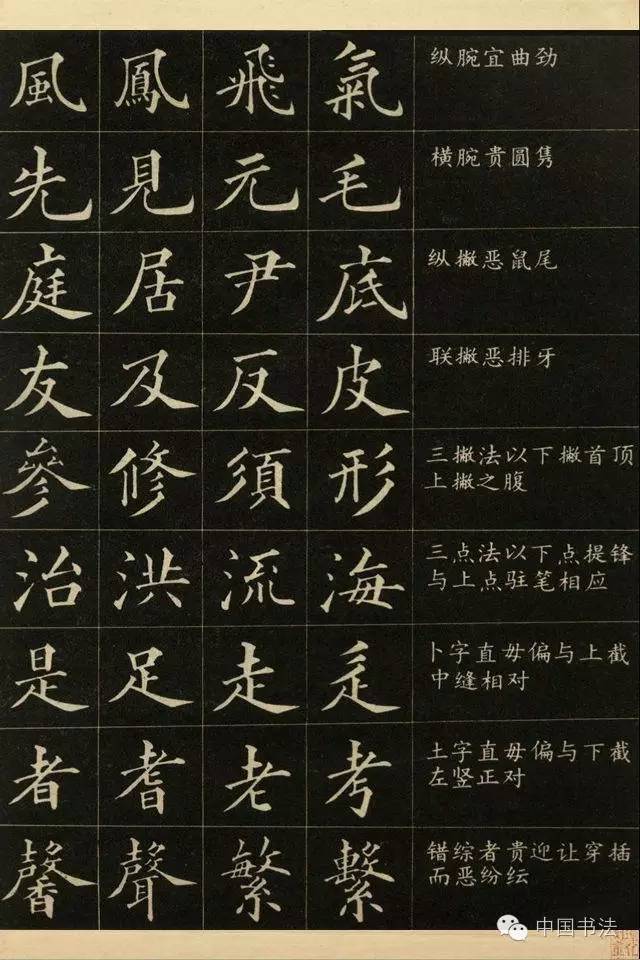 風 鳳 飛 氣 纵腕宜曲劲
先 見 元 毛 横腕贵圆隽
庭 居 尹 底 纵撇恶鼠尾
友 及 反 皮 联撇恶排牙
參 修 須 形 三撇法以下撇首顶
上撇之腹
治 洪 流 海 三点法以下点提锋
与上点驻笔相应
是 足 走 辵 卜字直毋偏与上截
中缝相对
者 耆 老 考 土字直毋偏与下截
左竖正对
馨 聲 繁 繫 错综者贵迎让穿插
而恶纷纭
中国书法